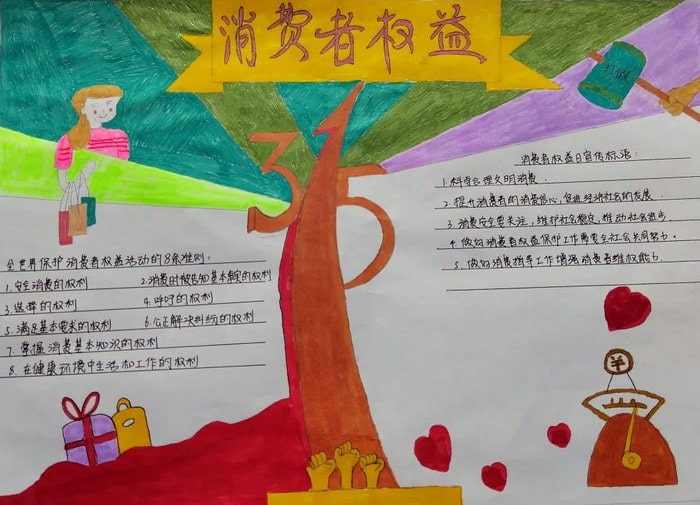 消费者权益
315
全世界保护消费者权益活动的8条准则:
1.安全消费的权利 2.消费时被告知基本事实的权利
3.选择的权利 4.呼吁的权利
5.满足基本要求的权利 6.公正解决纠纷的权利
7.掌握消费基本知识的权利
8.在健康环境中生活和工作的权利
消费者权益日宣传标语:
1.科学合理文明消费.
2.提升消费者的消费信心,促进经济社会的发展.
3.消费安全要关注,维护社会稳定,推动社会进步
4.做好消费者权益保护工作需要全社会共同努力.
5.做好消费指导工作增强消费者维权能力.
¥